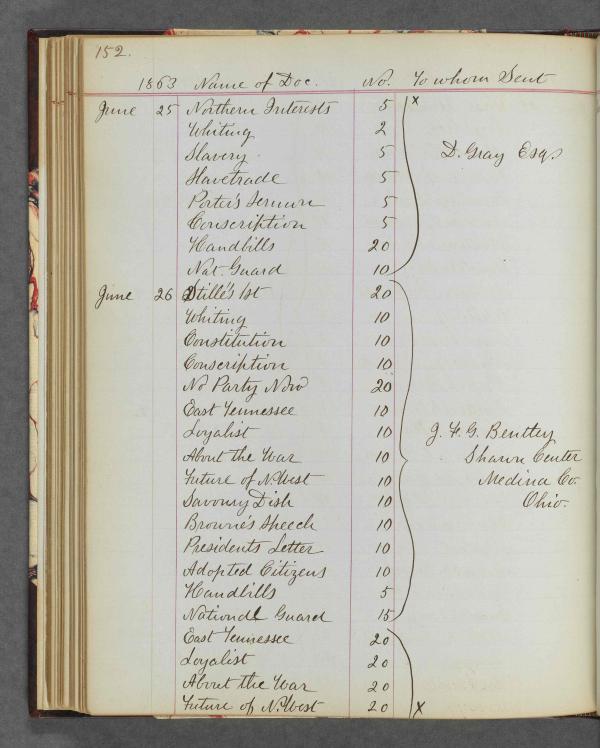 152.
1863 Name of Doc. No. To whom Sent
June 25 Northern Interests 5 x
Whiting 2
Slavery 5 D. Gray Esq.
Slavetrade 5
Porter's Sermon 5
Conscription 5
Handbills 20
Nat. Guard 10
June 26 Stillé's 1st 20
Whiting 10
Constitution 10
Conscription 10
No Party Now 20
East Tennessee 10
Loyalist 10 J. F. G. Bentley
About the War 10 Sharon Center
Future of N. West 10 Medina Co.
Savoury Dish 10 Ohio.
Browne's Speech 10
Presidents Letter 10
Adopted Citizens 10
Handbills 5
National Guard 15
East Tennessee 20
Loyalist 20
About the War 20
Future of N. West 20 x